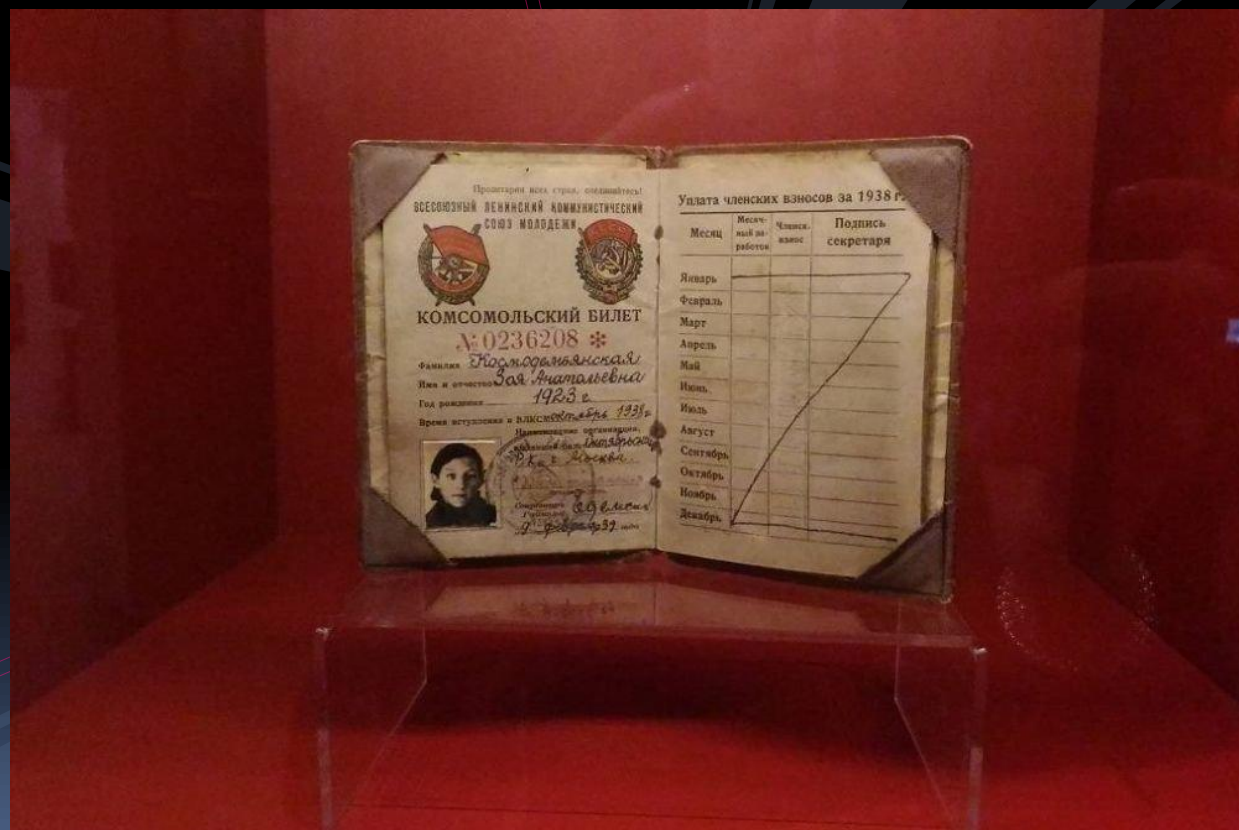 Пролетарии всех стран, соединяйтесь!
ВСЕСОЮЗНЫЙ ЛЕНИНСКИЙ КОММУНИСТИЧЕСКИЙ
СОЮЗ МОЛОДЕЖИ
КОМСОМОЛЬСКИЙ БИЛЕТ
№ 0236208 *
Фамилия Космодемьянская
Имя и отчество Зоя Анатольевна
Год рождения 1923 г.
Время вступления в ВЛКСМ октябрь 1938 г
Наименование организации,
Октябрьский
РК г. Москва.
9 февраля 39
Уплата членских взносов за 1938 г.
Месяц
Месяч-
ный за-
работок
Членск.
взнос
Подпись
секретаря
Январь
Февраль
Март
Апрель
Май
Июнь
Июль
Август
Сентябрь
Октябрь
Ноябрь
Декабрь